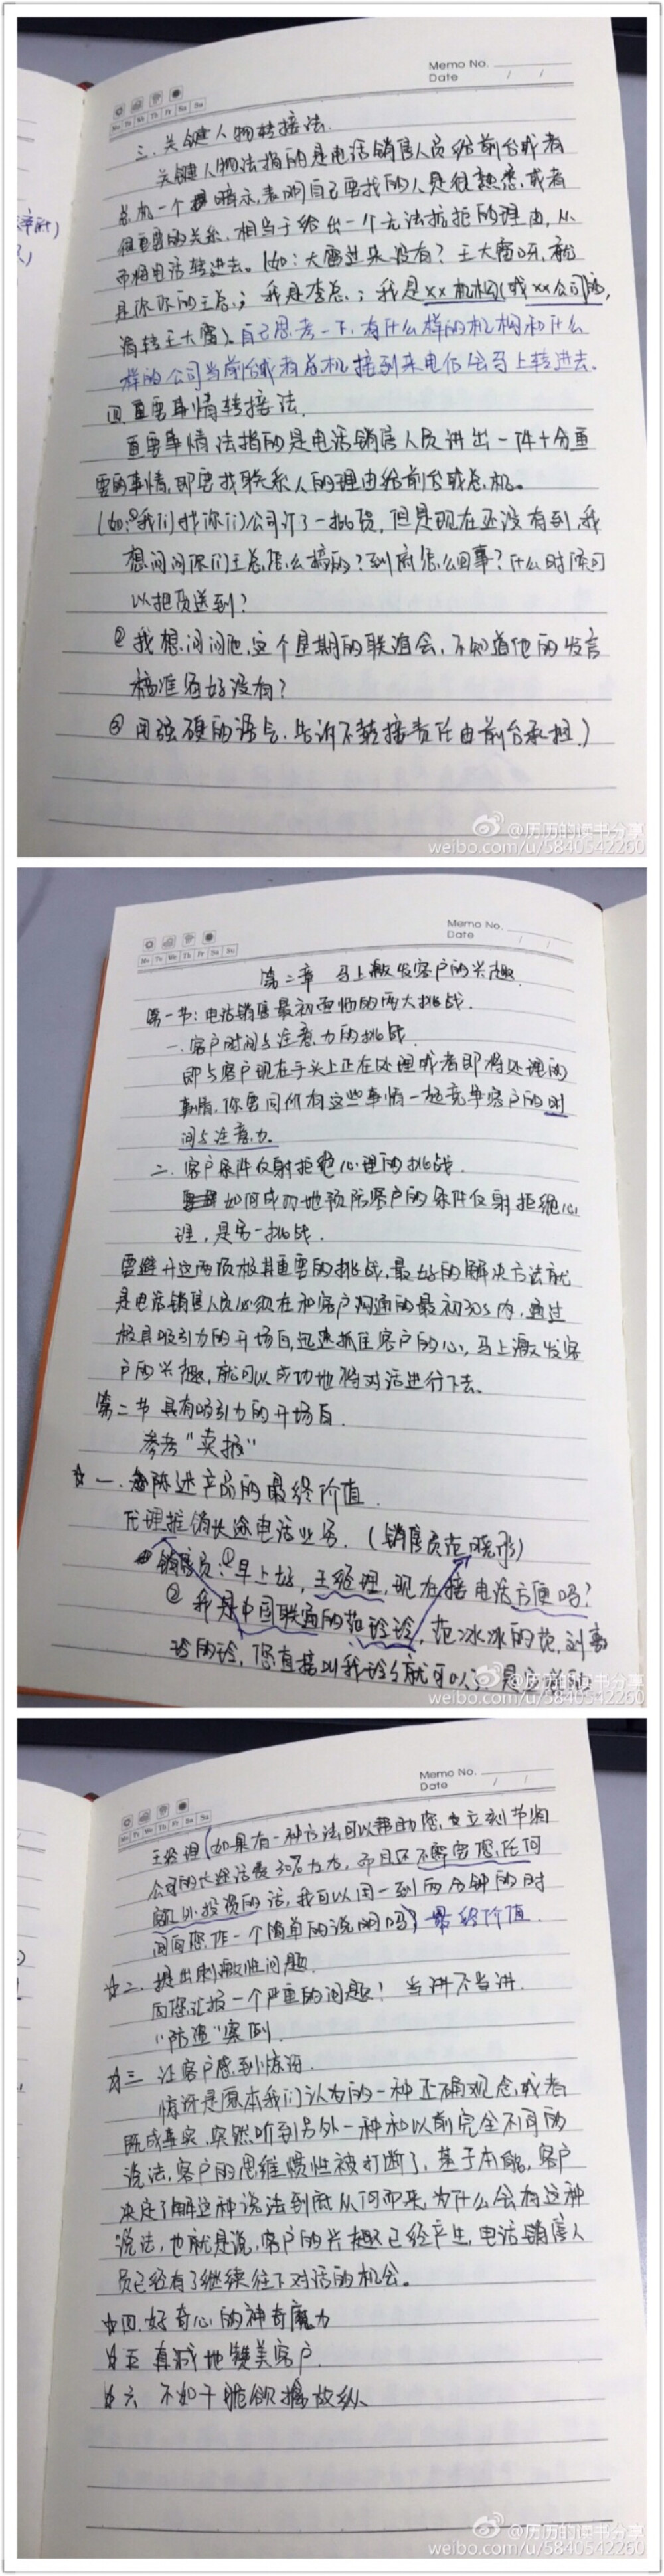 Memo No.
Date / /
Mo Tu We Th Fr Sa Su
三. 关键人物转接法.
关键人物法指的是电话销售人员给前台或者
总机一个暗示,表明自己要找的人是很熟悉,或者
很重要的关系,相当于给出一个无法抗拒的理由,从
而将电话转进去。(如:大雷过来没有?王大雷呀,就
是你们的王总;我是李总;我是xx机构(或xx公司)的,
请转王大雷).自己思考一下,有什么样的机构和什么
样的公司当前台或者总机接到来电后会马上转进去.
四.重要事情转接法.
重要事情法指的是电话销售人员讲出一件十分重
要的事情,即要找联系人的理由给前台或总机。
(如:①我们找你们公司订了一批货,但是现在还没有到,我
想问问你们王总怎么搞的?到底怎么回事?什么时候可
以把货送到?
②我想问问他,这个星期的联谊会,不知道他的发言
稿准备好没有?
③用强硬的语气,告诉不转接责任由前台承担.)
@历历的读书分享
weibo.com/u/5840542260
Memo No.
Date / /
Mo Tu We Th Fr Sa Su
第二章 马上激发客户的兴趣.
第一节:电话销售最初面临的两大挑战.
一.客户时间与注意力的挑战
即与客户现在手头上正在处理或者即将处理的
事情,你要同所有这些事情一起竞争客户的时
间与注意力。
二.客户条件反射拒绝心理的挑战.
如何成功地预防客户的条件反射拒绝心
理,是另一挑战.
要避开这两项极其重要的挑战,最好的解决方法就
是电话销售人员必须在和客户沟通的最初30s内,通过
极具吸引力的开场白,迅速抓住客户的心,马上激发客
户的兴趣,就可以成功地将对话进行下去。
第二节 具有吸引力的开场白.
参考"卖报"
☆一.陈述产品的最终价值.
代理推销长途电话业务.(销售员范晓彤)
销售员:①早上好,王经理,现在接电话方便吗?
②我是中国联通的范玲玲,范冰冰的范,刘嘉
玲的玲,您直接叫我玲玲就可以;是这样的
@历历的读书分享
weibo.com/u/5840542260
Memo No.
Date / /
Mo Tu We Th Fr Sa Su
王经理(如果有一种方法可以帮助您,立刻节省
公司的长途话费30%左右,而且还不需要您任何
额外投资的话,我可以用一到两分钟的时
间向您作一个简单的说明吗?)最终价值.
☆二.提出刺激性问题.
向您汇报一个严重的问题!当讲不当讲.
"防盗"案例.
☆三 让客户感到惊讶.
惊讶是原本我们认为的一种正确观念,或者
既成事实,突然听到另外一种和以前完全不同的
说法,客户的思维惯性被打断了,基于本能,客户
决定了解这种说法到底从何而来,为什么会有这种
说法,也就是说,客户的兴趣已经产生,电话销售人
员已经有了继续往下对话的机会。
☆四.好奇心的神奇魔力
☆五 真诚地赞美客户.
☆六 不如干脆欲擒故纵
@历历的读书分享
weibo.com/u/5840542260